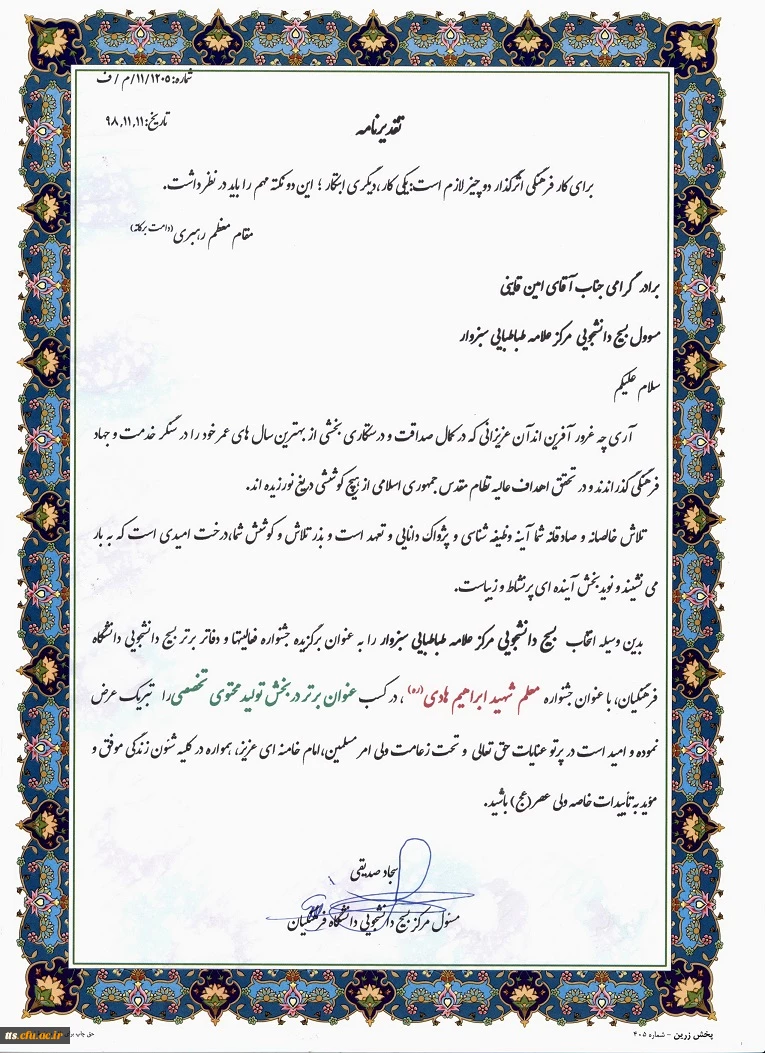 شماره: ۱۱/۱۲۰۵/م/ف
تاریخ: ۹۸,۱۱,۱۱
تقدیرنامه
برای کار فرهنگی اثرگذار دو چیز لازم است: یکی کار، دیگری ابتکار ؛ این دو نکته مهم را باید در نظر داشت.
مقام معظم رهبری (دامت برکاته)
برادر گرامی جناب آقای امین قاینی
مسوول بسیج دانشجویی مرکز علامه طباطبایی سبزوار
سلام علیکم
آری چه غرور آفرین اند آن عزیزانی که در کمال صداقت و درستکاری بخشی از بهترین سال های عمر خود را در سنگر خدمت و جهاد
فرهنگی گذراندند و در تحقق اهداف عالیه نظام مقدس جمهوری اسلامی از هیچ کوششی دریغ نورزیده اند.
تلاش خالصانه و صادقانه شما آینه وظیفه شناسی و پژواک دانایی و تعهد است و بذر تلاش و کوشش شما، درخت امیدی است که به بار
می نشیند و نوید بخش آینده ای پرنشاط و زیباست.
بدین وسیله انتخاب بسیج دانشجویی مرکز علامه طباطبایی سبزوار را به عنوان برگزیده جشنواره فعالیتها و دفاتر برتر بسیج دانشجویی دانشگاه
فرهنگیان، با عنوان جشنواره معلم شهید ابراهیم هادی (ره) ، در کسب عنوان برتر در بخش تولید محتوی تخصصی را تبریک عرض
نموده و امید است در پرتو عنایات حق تعالی و تحت زعامت ولی امر مسلمین، امام خامنه ای عزیز، همواره در کلیه شئون زندگی موفق و
مؤید به تأییدات خاصه ولی عصر (عج) باشید.
سجاد صدیقی
مسئول مرکز بسیج دانشجویی دانشگاه فرهنگیان
پخش زرین - شماره ۴۰۵
حق چاپ
its.cfu.ac.ir